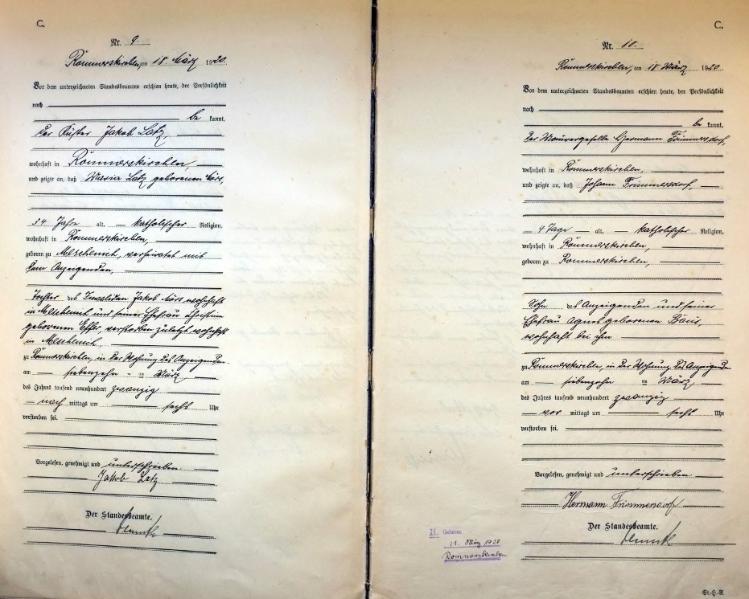 C.
Nr. 9
Rommerskirchen, am 18 März 1920.
Vor dem unterzeichneten Standesbeamten erschien heute, der Persönlichkeit
nach
be kannt,
der Küster Jakob Latz,
wohnhaft in Rommerskirchen,
und zeigte an, daß Maria Latz geborenen
Jahre alt, katholischer Religion,
wohnhaft in Rommerskirchen,
geboren zu verheiratet mit
dem Anzeigenden,
Tochter des Invaliden Jakob wohnhaft
in und seiner Ehefrau
geborenen verstorben zuletzt wohnhaft
in
zu Rommerskirchen, in der Wohnung des Anzeigenden
am siebenzehn ten März
des Jahres tausend neunhundert zwanzig
nach mittags um sechs Uhr
verstorben sei.
Vorgelesen, genehmigt und unterschrieben
Jakob Latz
Der Standesbeamte.
C.
Nr. 10
Rommerskirchen, am 18 März 1920
Vor dem unterzeichneten Standesbeamten erschien heute, der Persönlichkeit
nach
be kannt,
der Hermann Frimmersdorf,
wohnhaft in Rommerskirchen,
und zeigte an, daß Johann Frimmersdorf,
4 Tage alt, katholischer Religion,
wohnhaft in Rommerskirchen,
geboren zu Rommerskirchen,
Sohn des Anzeigenden und seiner
Ehefrau Agnes geborenen
wohnhaft bei ihm
zu Rommerskirchen, in der Wohnung des Anzeigenden
am siebenzehn ten März
des Jahres tausend neunhundert zwanzig
vor mittags um sechs Uhr
verstorben sei.
Vorgelesen, genehmigt und unterschrieben
Hermann Frimmersdorf
Der Standesbeamte.
Geboren
März
Rommerskirchen